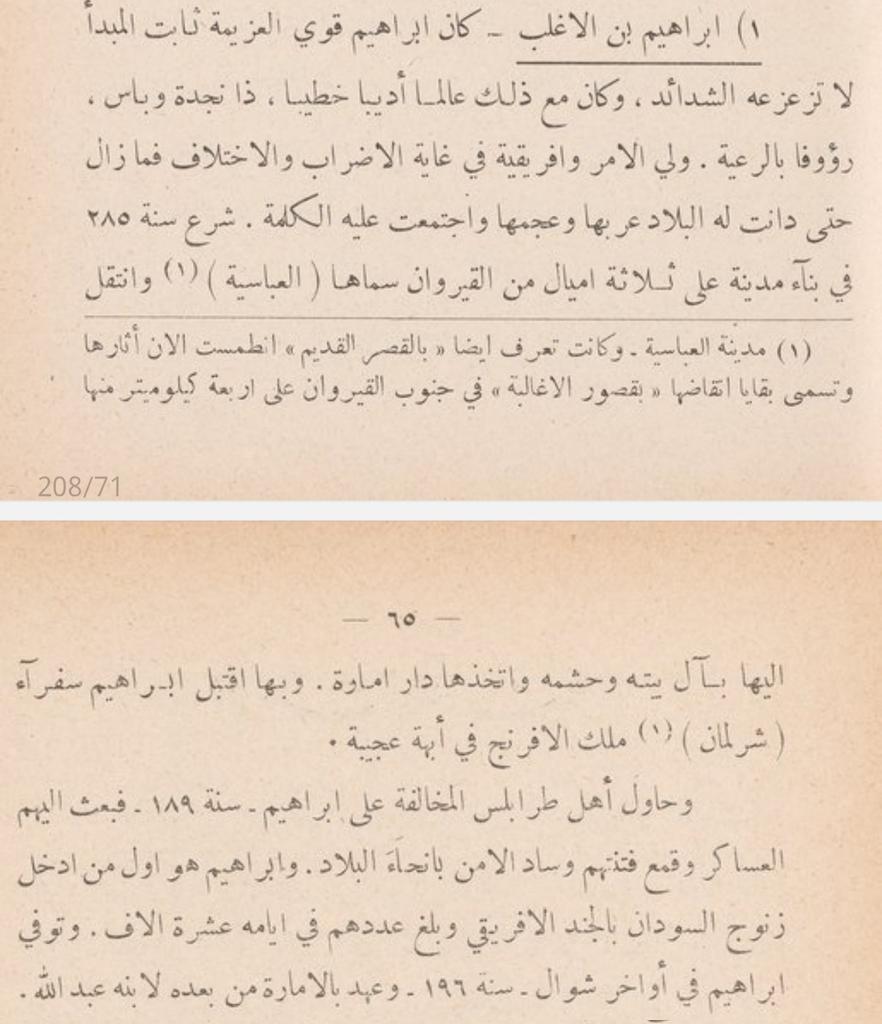 ١) ابراهيم بن الاغلب - كان ابراهيم قوي العزيمة ثابت المبدأ
لا تزعزعه الشدائد ، وكان مع ذلك عالما أديبا خطيبا ، ذا نجدة وباس ،
رؤوفا بالرعية . ولي الامر وافريقية في غاية الاضراب والاختلاف فما زال
حتى دانت له البلاد عربها وعجمها واجتمعت عليه الكلمة . شرع سنة ٢٨٥
في بنآء مدينة على ثلاثة اميال من القيروان سماها ( العباسية ) (١) وانتقل
(١) مدينة العباسية - وكانت تعرف ايضا « بالقصر القديم » انطمست الان أثارها
وتسمى بقايا انقاضها « بقصور الاغالبة » في جنوب القيروان على اربعة كيلوميتر منها
208/71
— ٦٥ —
اليها بـآل بيته وحشمه واتخذها دار اماوة . وبها اقتبل ابراهيم سفرآء
( شرلمان ) (١) ملك الافرنج في أبهة عجيبة .
وحاول أهل طرابلس المخالفة على ابراهيم - سنة ١٨٩ - فبعث اليهم
العساكر وقمع فتنتهم وساد الامن بانحآء البلاد . وابراهيم هو اول من ادخل
زنوج السودان بالجند الافريقي وبلغ عددهم في ايامه عشرة الاف . وتوفي
ابراهيم في أواخر شوال - سنة ١٩٦ - وعهد بالامارة من بعده لابنه عبد الله .